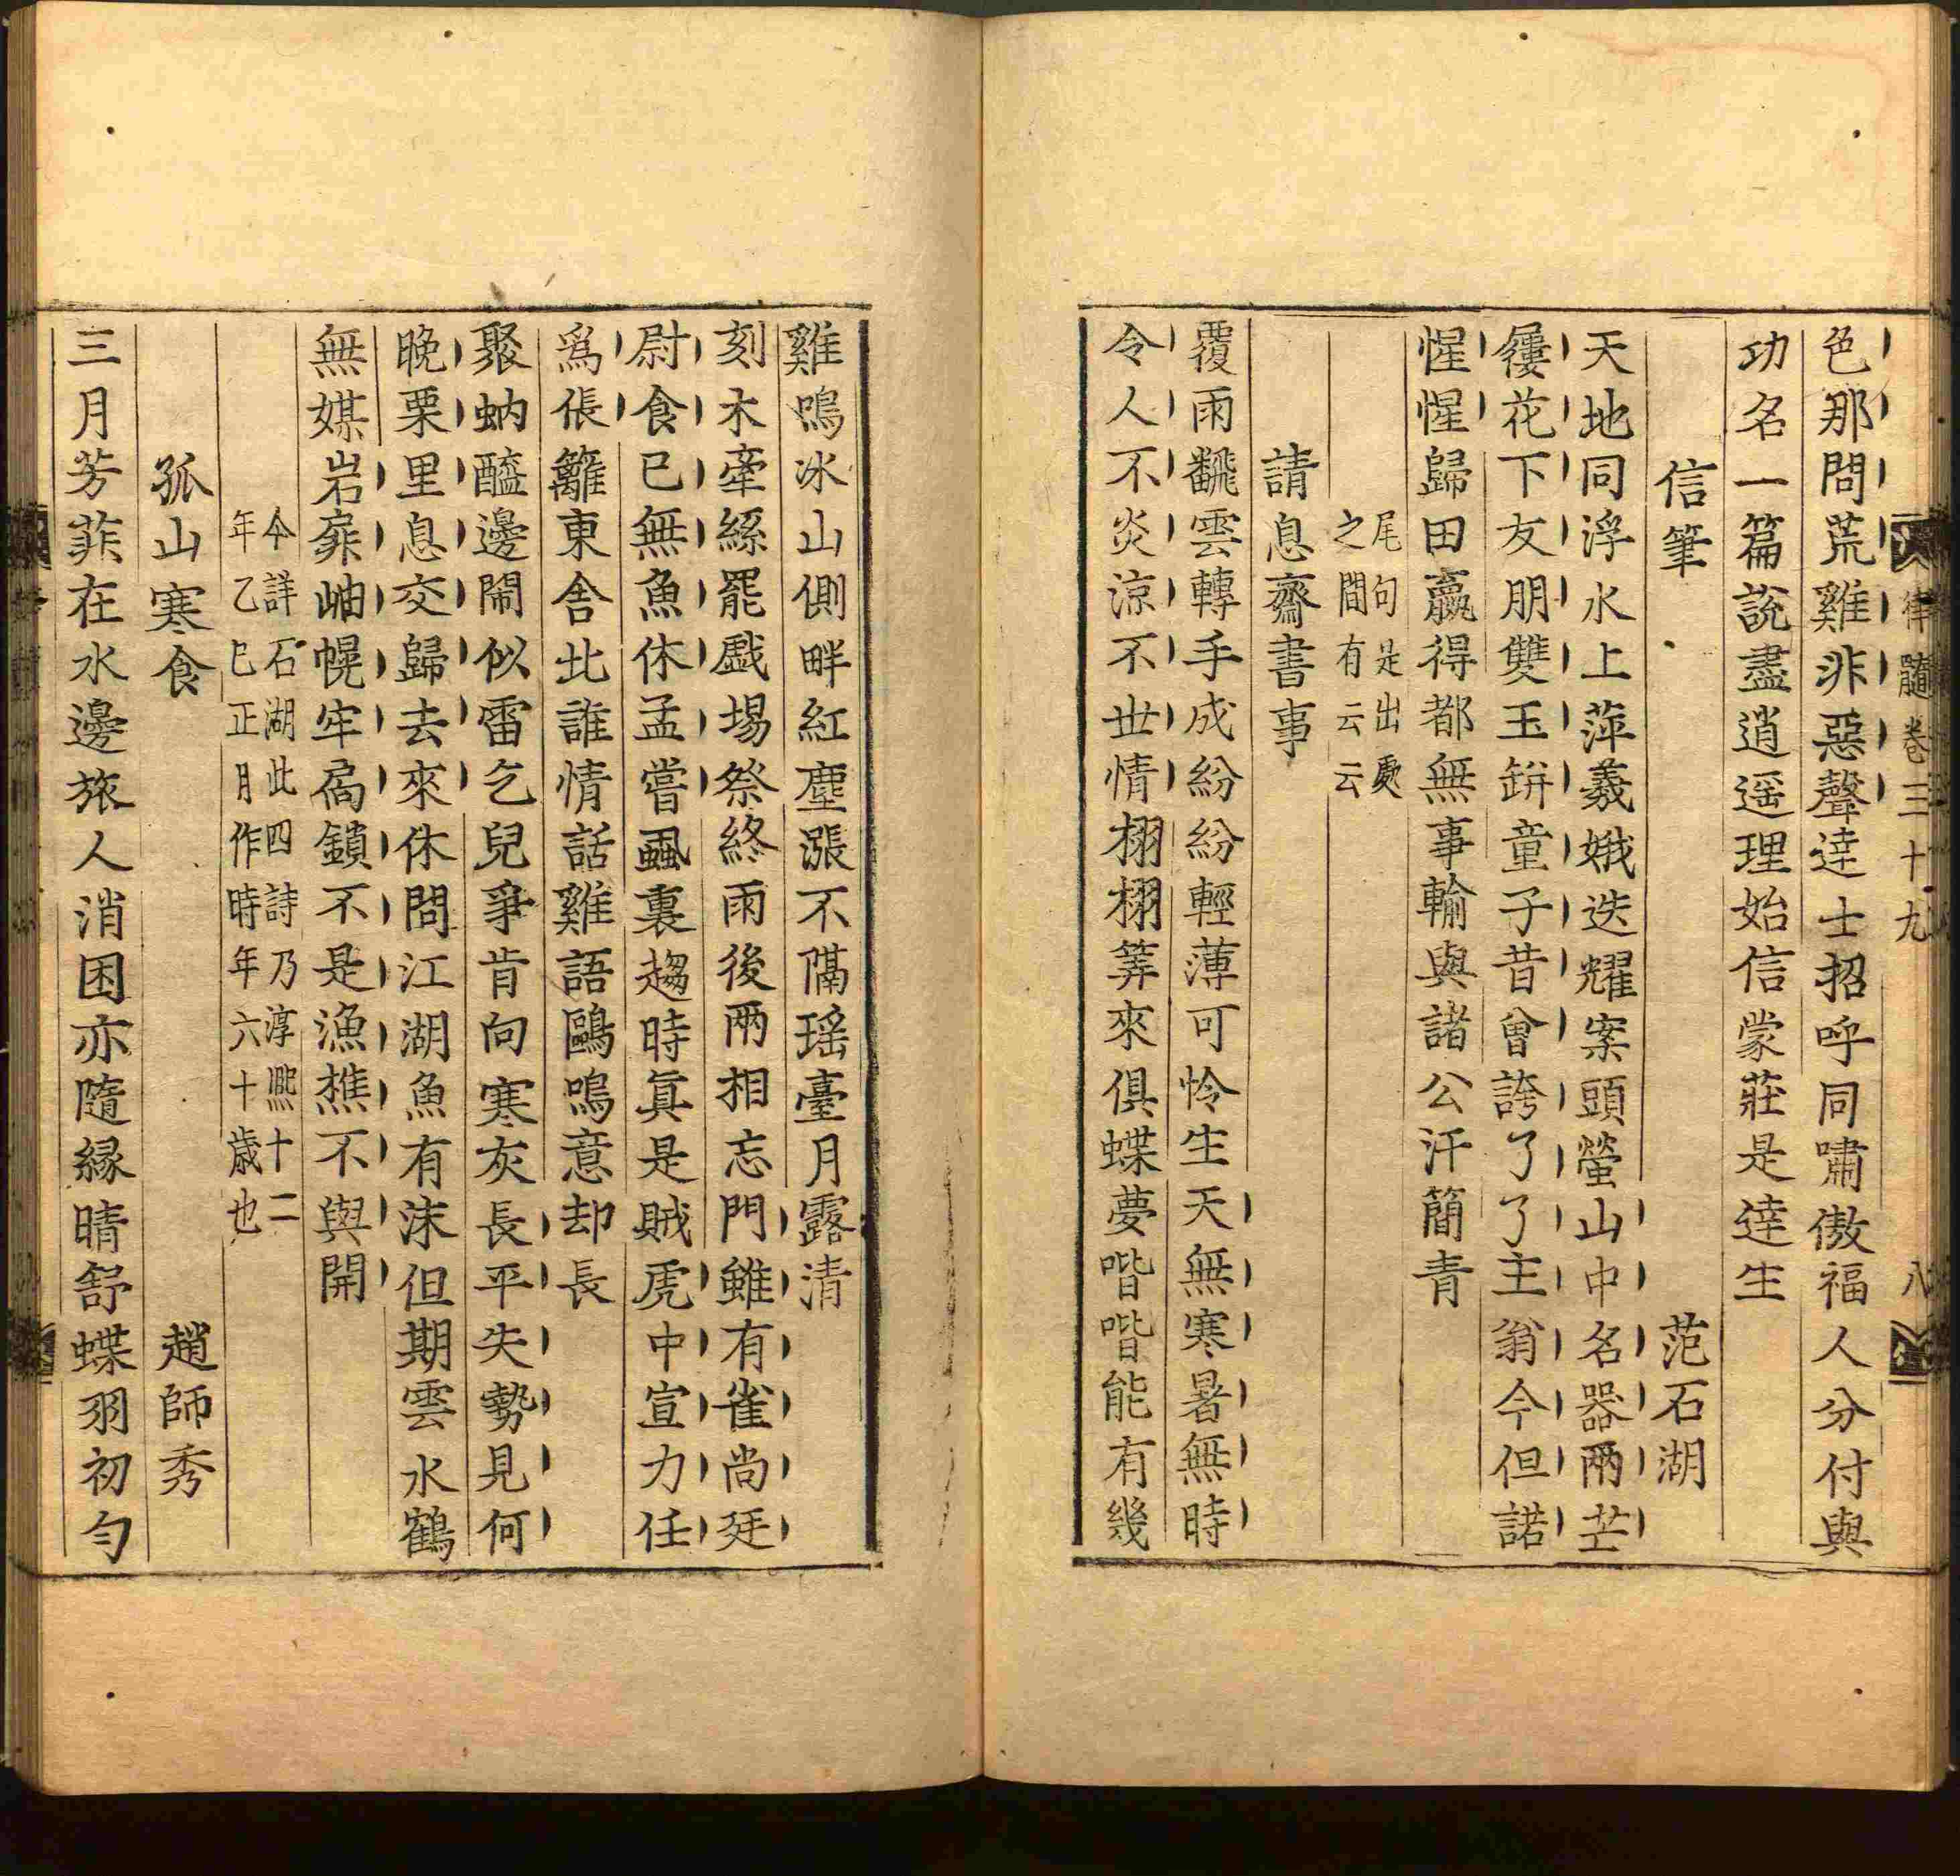 律髓卷三十九 八
色那問荒雞非惡聲達士招呼同嘯傲福人分付與
功名一篇說盡逍遥理始信蒙莊是達生
信筆 范石湖
天地同浮水上萍羲娥迭耀案頭螢山中名器兩芒
屨花下友朋雙玉缾童子昔曾誇了了主翁今但諾
惺惺歸田贏得都無事輸與諸公汗簡青
尾句是出處
之間有云云
請息齋書事
覆雨飜雲轉手成紛紛輕薄可怜生天無寒暑無時
令人不炎涼不世情栩栩筭來俱蝶夢喈喈能有幾
雞鳴冰山側畔紅塵漲不隔瑶臺月露清
刻木牽絲罷戲場祭終雨後兩相忘門雖有雀尚廷
尉食已無魚休孟嘗虱裏趨時眞是賊虎中宣力任
爲倀籬東舍北誰情話雞語鷗鳴意却長
聚蚋醯邊鬧似雷乞兒爭肯向寒灰長平失勢見何
晚栗里息交歸去來休問江湖魚有沫但期雲水鶴
無媒岩扉岫幌牢扃鎖不是漁樵不與開
今詳石湖此四詩乃淳熙十二
年乙巳正月作時年六十歳也
孤山寒食 趙師秀
三月芳菲在水邊旅人消困亦隨縁晴舒蝶羽初勻